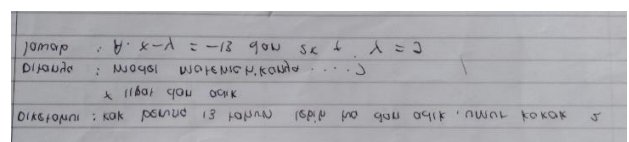 Diketahui : kak penna 13 tahun lebih tua dari adik. umur kakak 5
x lipat dari adik
Ditanya : model matematikanya ....?
Jawab : A. x-y = -13 dan 5x + y = 0